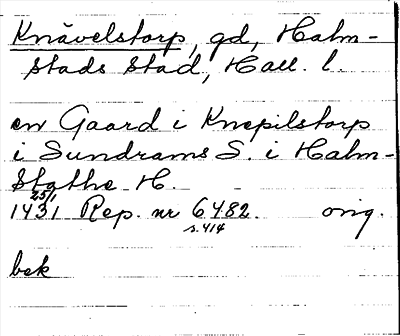 Knävelstorp, gd, Halm-
stads stad, Hall. l.
en Gaard i Knepilstorp
i Sundrams S. i Halm-
Stathe H.
25/1
1431 Rep. nr 6482. orig.
s. 414
bek